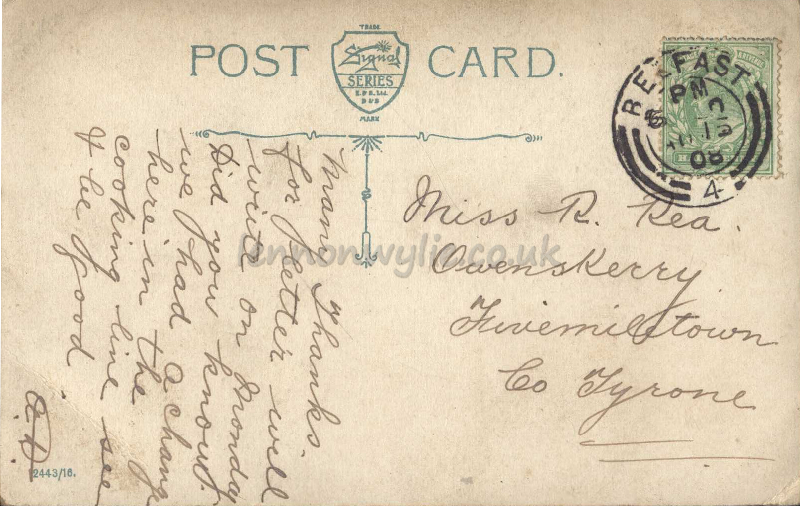 POST CARD.
TRADE
Signal
SERIES
E.&S. Ltd.
DUB
MARK
BELFAST
PM
13
08
4
Many Thanks.
for letter will
write on Monday
Did you know
we had a change
here, in the
cooking line see
& be good
A.D.
Miss R. Rea.
Owenskerry
Fivemiletown
Co Tyrone
lennonwylie.co.uk
2443/16.